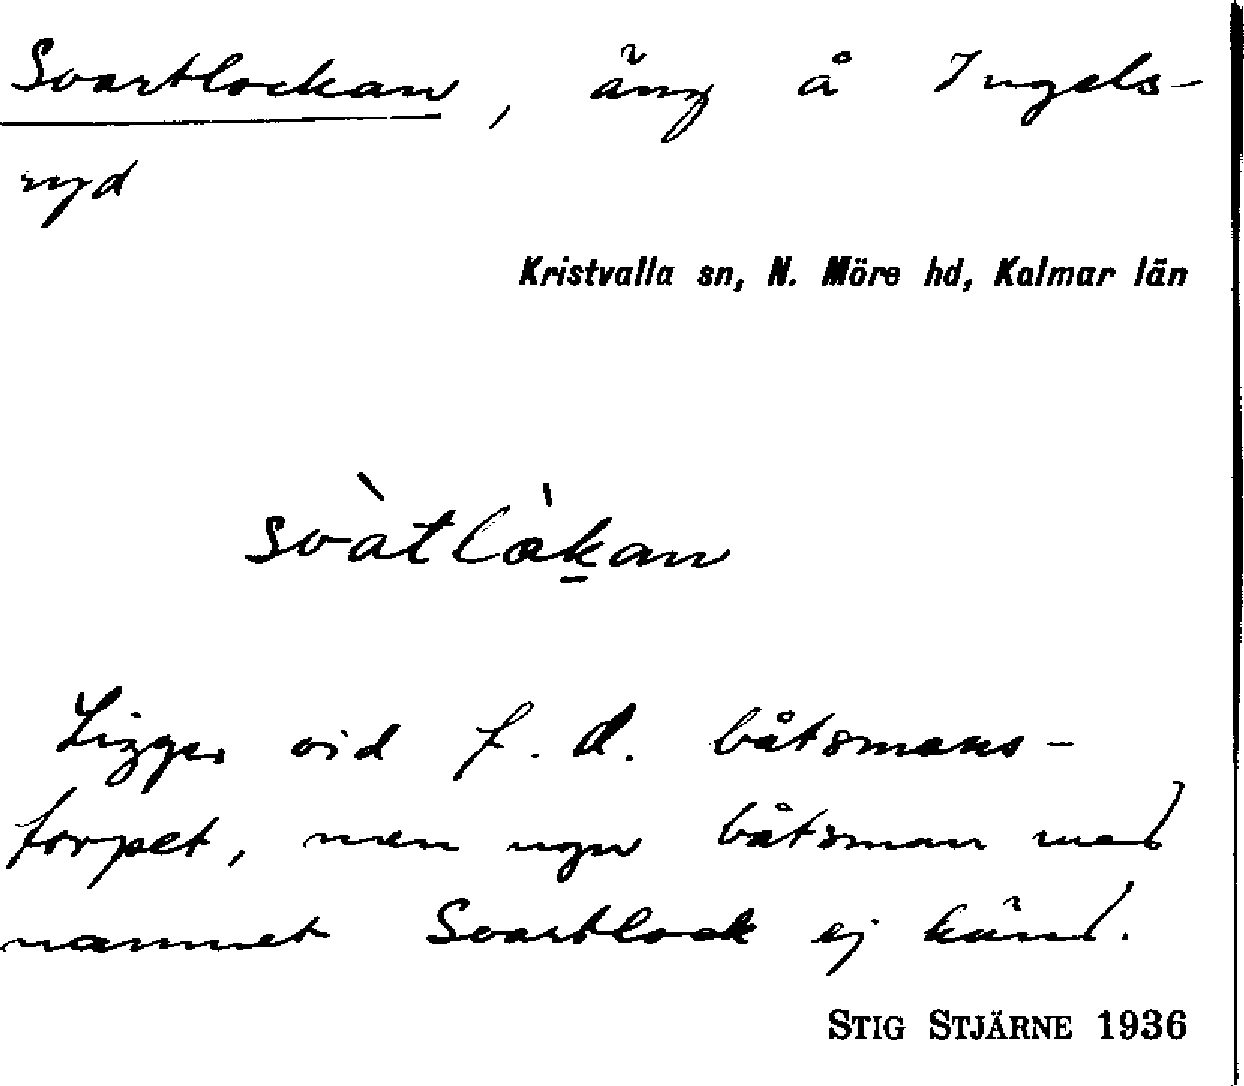 Svartlockan, äng å Ingels-
ryd
Kristvalla sn, N. Möre hd, Kalmar län
svàtlàkan
Ligger vid f. d. båtsmans-
torpet, men ngn båtsman med
namnet Svartlock ej känd.
STIG STJÄRNE 1936